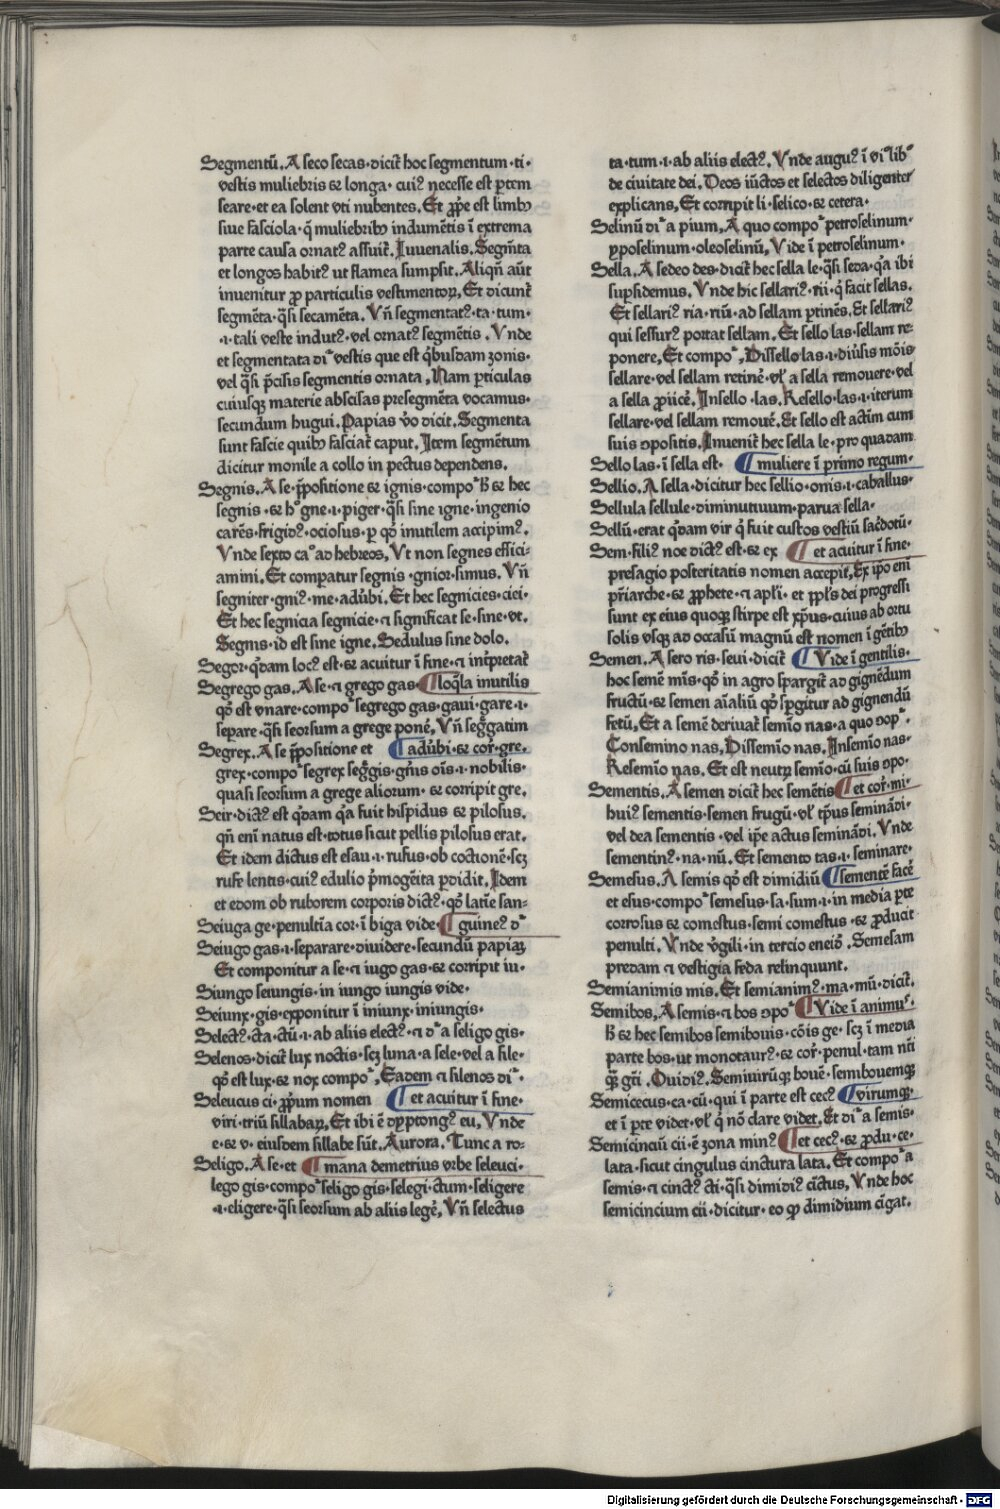 Segmentū. A seco secas·dicit̄ hoc segmentum·ti·
vestis muliebris ⁊ longa·cuiꝰ necesse est ꝑtem
seare·et ea solent vti nubentes. Et ꝓpͤ est limbꝰ
siue fasciola·q̄ muliebribꝰ indumētis ī extrema
parte causa ornatꝰ assuit̄. Iuuenalis. Segm̄ta
et longos habitꝰ ut flamea sumpsit. Aliqn̄ aūt
inuenitur ꝓ particulis vestimentoꝝ. Et dicunt̄
segmēta·q̄si secamēta. Vn̄ segmentatꝰ·ta·tum·
·i·tali veste indutꝰ·vel ornatꝰ segmētis. Vnde
et segmentata dr̄ vestis que est q̄busdam zonis·
vel q̄si p̄cisis segmentis ornata. Nam ꝑticulas
cuiusqꝫ materie abscisas presegmēta vocamus·
secundum hugui. Papias v̊o dicit. Segmenta
sunt fascie quibꝰ fasciat̄ caput. Item segmētum
dicitur monile a collo in pectus dependens.
Segnis. A se·p̄positione ⁊ ignis·compoʳ h̄ ⁊ hec
segnis·⁊ h̊ gne·i·piger·q̄si sine igne·ingenio
carēs·frigidꝰ·ociosus·ꝑ qd̊ inutilem accipimꝰ.
Vnde sexto caº ad hebreos. Vt non segnes effici-
amini. Et comꝑatur segnis·gnior·simus. Vn̄
segniter·gniꝰ·me·aduͤbi. Et hec segnicies·ciei·
Et hec segnicia segnicie·⁊ significat se·sine·vt.
Segnis·id est sine igne. Sedulus sine dolo.
Segor·q̄dam locꝰ est·⁊ acuitur ī fine·⁊ int̄pretat̄
Segrego gas. A se·⁊ grego gas· ¶ loq̄la inutilis
qd̊ est vnare·compoʳ segrego gas·gaui·gare·i·
seꝑare·q̄si seorsum a grege ponē. Vn̄ seg̃gatim
Segrex. A se p̄positione et ¶ aduͤbi·⁊ corꝰ·gre·
grex·compoʳ segrex seg̃gis·gn̄is oīs·i·nobilis·
quasi seorsum a grege aliorum·⁊ corripit gre.
Seir·dictꝰ est q̄dam q̄a fuit hispidus ⁊ pilosus.
qn̄ enī natus est·totus sicut pellis pilosus erat.
Et idem dictus est esau·i·rufus·ob coctionē·scꝫ
rufe lentis·cuiꝰ edulio p̄mogēita ꝑdidit. Idem
et edom ob ruborem corporis dictꝰ·qd̊ latie san-
Seiuga ge·penultīa cor·ī biga vide· ¶ guineꝰ dʳ
Seiugo gas·i·separare·diuidere·secundū papiaꝫ
Et componitur a se·⁊ iugo gas·⁊ corripit iu·
Siungo seiungis·in iungo iungis vide·
Seiunx·gis·exponitur ī iniunx·iniungis·
Selectꝰ·cta·ctū·i·ab aliis electꝰ·⁊ dʳ a seligo gis·
Selenos·dicit̄ lux noctis·scꝫ luna·a sele·vel a sile·
qd̊ est lux·⁊ nox compoʳ. Eadem ⁊ silenos dīʳ
Seleucus ci·ꝓpͥum nomen ¶ et acuitur ī fine·
viri·triū sillabaꝝ. Et ibi ē dyptongꝰ eu. Vnde
e·⁊ v·eiusdem sillabe sūt. Aurora. Tunc a ro-
Seligo. A se·et ¶ mana demetrius vrbe seleuci·
lego gis·compoʳ seligo gis·selegi·ctum·seligere
·i·eligere·q̄si seorsum ab aliis legē. Vn̄ selectus
ta·tum·i·ab aliis electꝰ. Vnde auguꝰ ī viʳ libº
de ciuitate dei. Deos iūctos et selectos diligenter
explicans. Et corripit li·selico·⁊ cetera·
Selinū dīʳ a pium. A quo compoʳ petroselinum·
yposelinum·oleoselinū. Vide ī petroselinum·
Sella. A sedeo des·dicit̄ hec sella le·q̄si seda·q̄a ibi
suꝑsidemus. Vnde hic sellariꝰ·rii·q̇ facit sellas.
Et sellariꝰ ria·riū·ad sellam ꝑtinēs. Et sellariꝰ
qui sessurꝰ portat sellam. Et sello las·sellam re-
ponere. Et compoʳ. Dissello las·i·diūsis mōis
sellare·vel sellam retinē·vl̄ a sella remouere·vel
a sella ꝓiicē. Insello·las. Resello·las·i·iterum
sellare·vel sellam remouē. Et sello est actīm cum
suis ꝯpositis. Inuenit̄ hec sella le·pro quadam
Sello las·ī sella est· ¶ muliere ī primo regum·
Sellio. A sella·dicitur hec sellio·onis·i·caballus·
Sellula sellule·diminutiuum·parua sella·
Sellū·erat q̄dam vir q̇ fuit custos vestiū sac̄dotū·
Sem·filiꝰ noe dictꝰ est·⁊ ex ¶ et acuitur ī fine·
presagio posteritatis nomen accepit. Ex ip̄o enī
pr̄iarche·⁊ ꝓphete·⁊ apl̄i·et ppl̄s dei progressi
sunt ex eius quoqꝫ stirpe est xp̄us·cuius ab ortu
solis vsqꝫ ad occasū magnū est nomen ī gētibꝰ
Semen. A sero ris·seui·dicit̄ ¶ Vide ī gentilis·
hoc semē mīs·qd̊ in agro spargit̄ ad gignēdum
fructū·⁊ semen aīaliū qd̊ sꝑgitur ad gignendū
fetū. Et a semē deriuat̄ semīo nas·a quo ꝯpoʳ·
Consemino nas. Dissemīo nas. Insemīo nas·
Resemīo nas. Et est neutꝝ semīo·cū suis ꝯpo·
Sementis. A semen dicit̄ hec semētis ¶ et corꝰ·mi·
huiꝰ sementis·semen frugū·vl̄ tp̄us semināndi·
vel dea sementis·vel ip̄e actus semināndi. Vnde
sementinꝰ·na·nū. Et semento tas·i·seminare·
Semesus. A semis qd̊ est dimidiū ¶ sementē facē
et esus·compoʳ semesus·sa·sum·i·in media ꝑte
corrosus ⁊ comestus·semi comestus·⁊ ꝓducit
penulti. Vnde v̊gili·in tercio eneid̊. Semesam
predam ⁊ vestigia feda relinquunt.
Semianimis mis. Et semianimꝰ·ma·mū·dicit̄.
Semibos. A semis·⁊ bos ꝯpoʳ ¶ Vide ī animuꝰ·
h̄ ⁊ hec semibos semibouis·cōis ge·scꝫ ī media
parte bos·ut monotaurꝰ·⁊ corꝰ·penul·tam nt̄i
qꝫ gt̄i. Ouidiꝰ. Semiuirūqꝫ bouē·semibouemqꝫ
Semicecus·ca·cū·qui ī parte est cecꝰ ¶ virumqꝫ·
et ī ꝑte videt·vl̄ q̇ nō clare videt. Et dīʳ a semis·
Semicinciū cii·ē zona minꝰ ¶ et cecꝰ·⁊ ꝓdu·ce·
lata·sicut cingulus cinctura lata. Et compoʳ a
semis·⁊ cinctꝰ cti·q̄si dimidiꝰ cīctus. Vnde hoc
semicincium cii·dicitur·eo qꝫ dimidium cīgat.
Digitalisierung gefördert durch die Deutsche Forschungsgemeinschaft - DFG